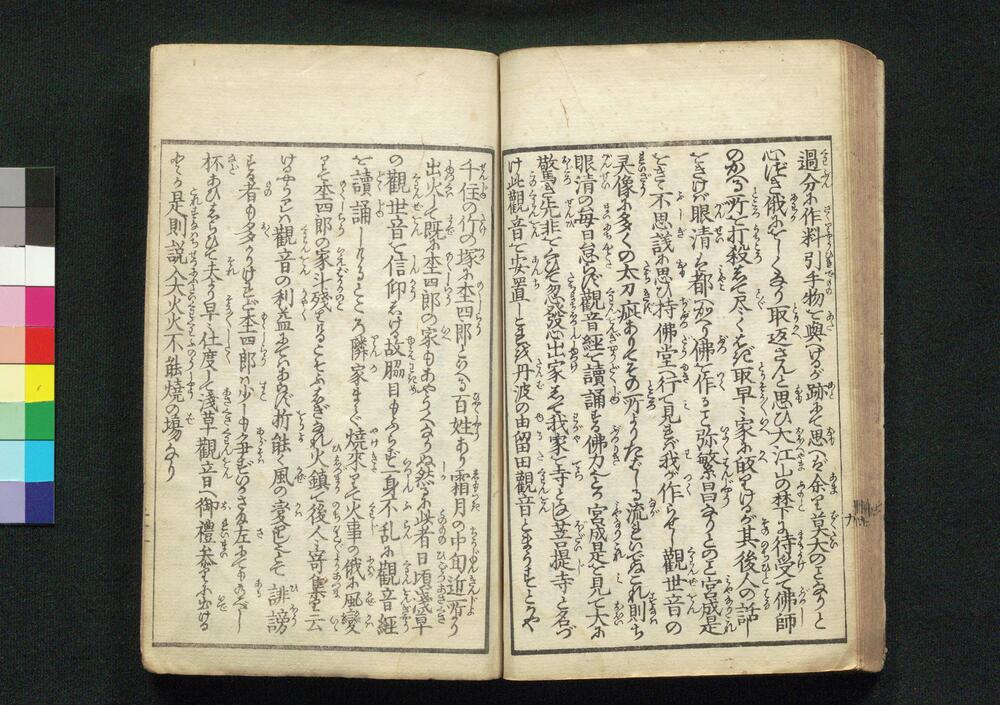 過分に作料引手物を與へけるが跡にて思へば余り莫大のことなりと
心づき俄にをしくなり取返さんと思ひ大江山の梺に待受て佛師
のかへる所を打殺しそて尽く是を取早々家に皈りけるが其後人の話
をきけば眼清は都へかへり佛を作ること弥繁昌なりとのこと宮成是
をきゝ不思議に思ひ持佛堂へ行て見れば我が作らせし観世音の
灵像に多くの太刀疵ありてその所よりたど〳〵しく流れいでこれ則ち
眼清の毎日怠らず觀音經を讀誦する佛力ところ宮成是を見て大に
驚き先非をくひ忽發心出家して我家を寺となし菩提寺と名づ
け此觀音を安置しき今丹波の由留田觀音とまうすとぞや
千住の竹の塚に杢四郎といへる百姓あり霜月の中旬近所より
出火して既に杢四郎の家もあやうくなりぬ然るに此者日頃淺草
の觀世音を信仰しける故脇目もふらず一身不乱に觀音經
を讀誦しけるところ隣家まで燒來りて火事の俄に風変
りて杢四郎の家計残りけるこそふしぎなれ火鎮て後人々寄集り云
けるやうは觀音の利益にてはあらず折能く風の変りしとて誹謗
する者も多かりけれども杢四郎は少しも争ずいかさま左にてもあるべし
抔あひしらひて夫より早々仕度して淺草觀音へ御禮参りに出ける
とかや是則説入大火火不能燒の場なり